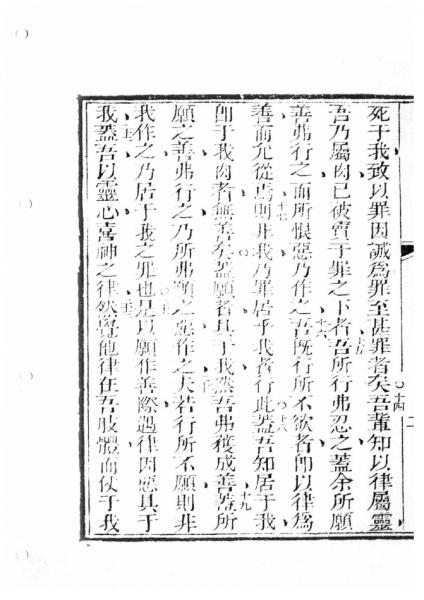 死于我致以罪因誡為罪至甚罪者矣吾輩知以律屬靈
吾乃屬肉已被賣于罪之下者吾所行弗忍之蓋余所願
善弗行之而所恨惡乃作之吾旣行所不欲者卽以律為
善而允從焉則非我乃罪居乎我者行此蓋吾知居于我
卽于我肉者無善矣蓋願者具于我然吾弗獲成善蓋所
願之善弗行之乃所弗願之惡作之夫若行所不願則非
我作之乃居于我之罪也是以願作善際遇律因惡具于
我蓋吾以靈心喜神之律然覺他律在吾肢體而仗于我
十四
二
十五
十六
十七
十八
十九